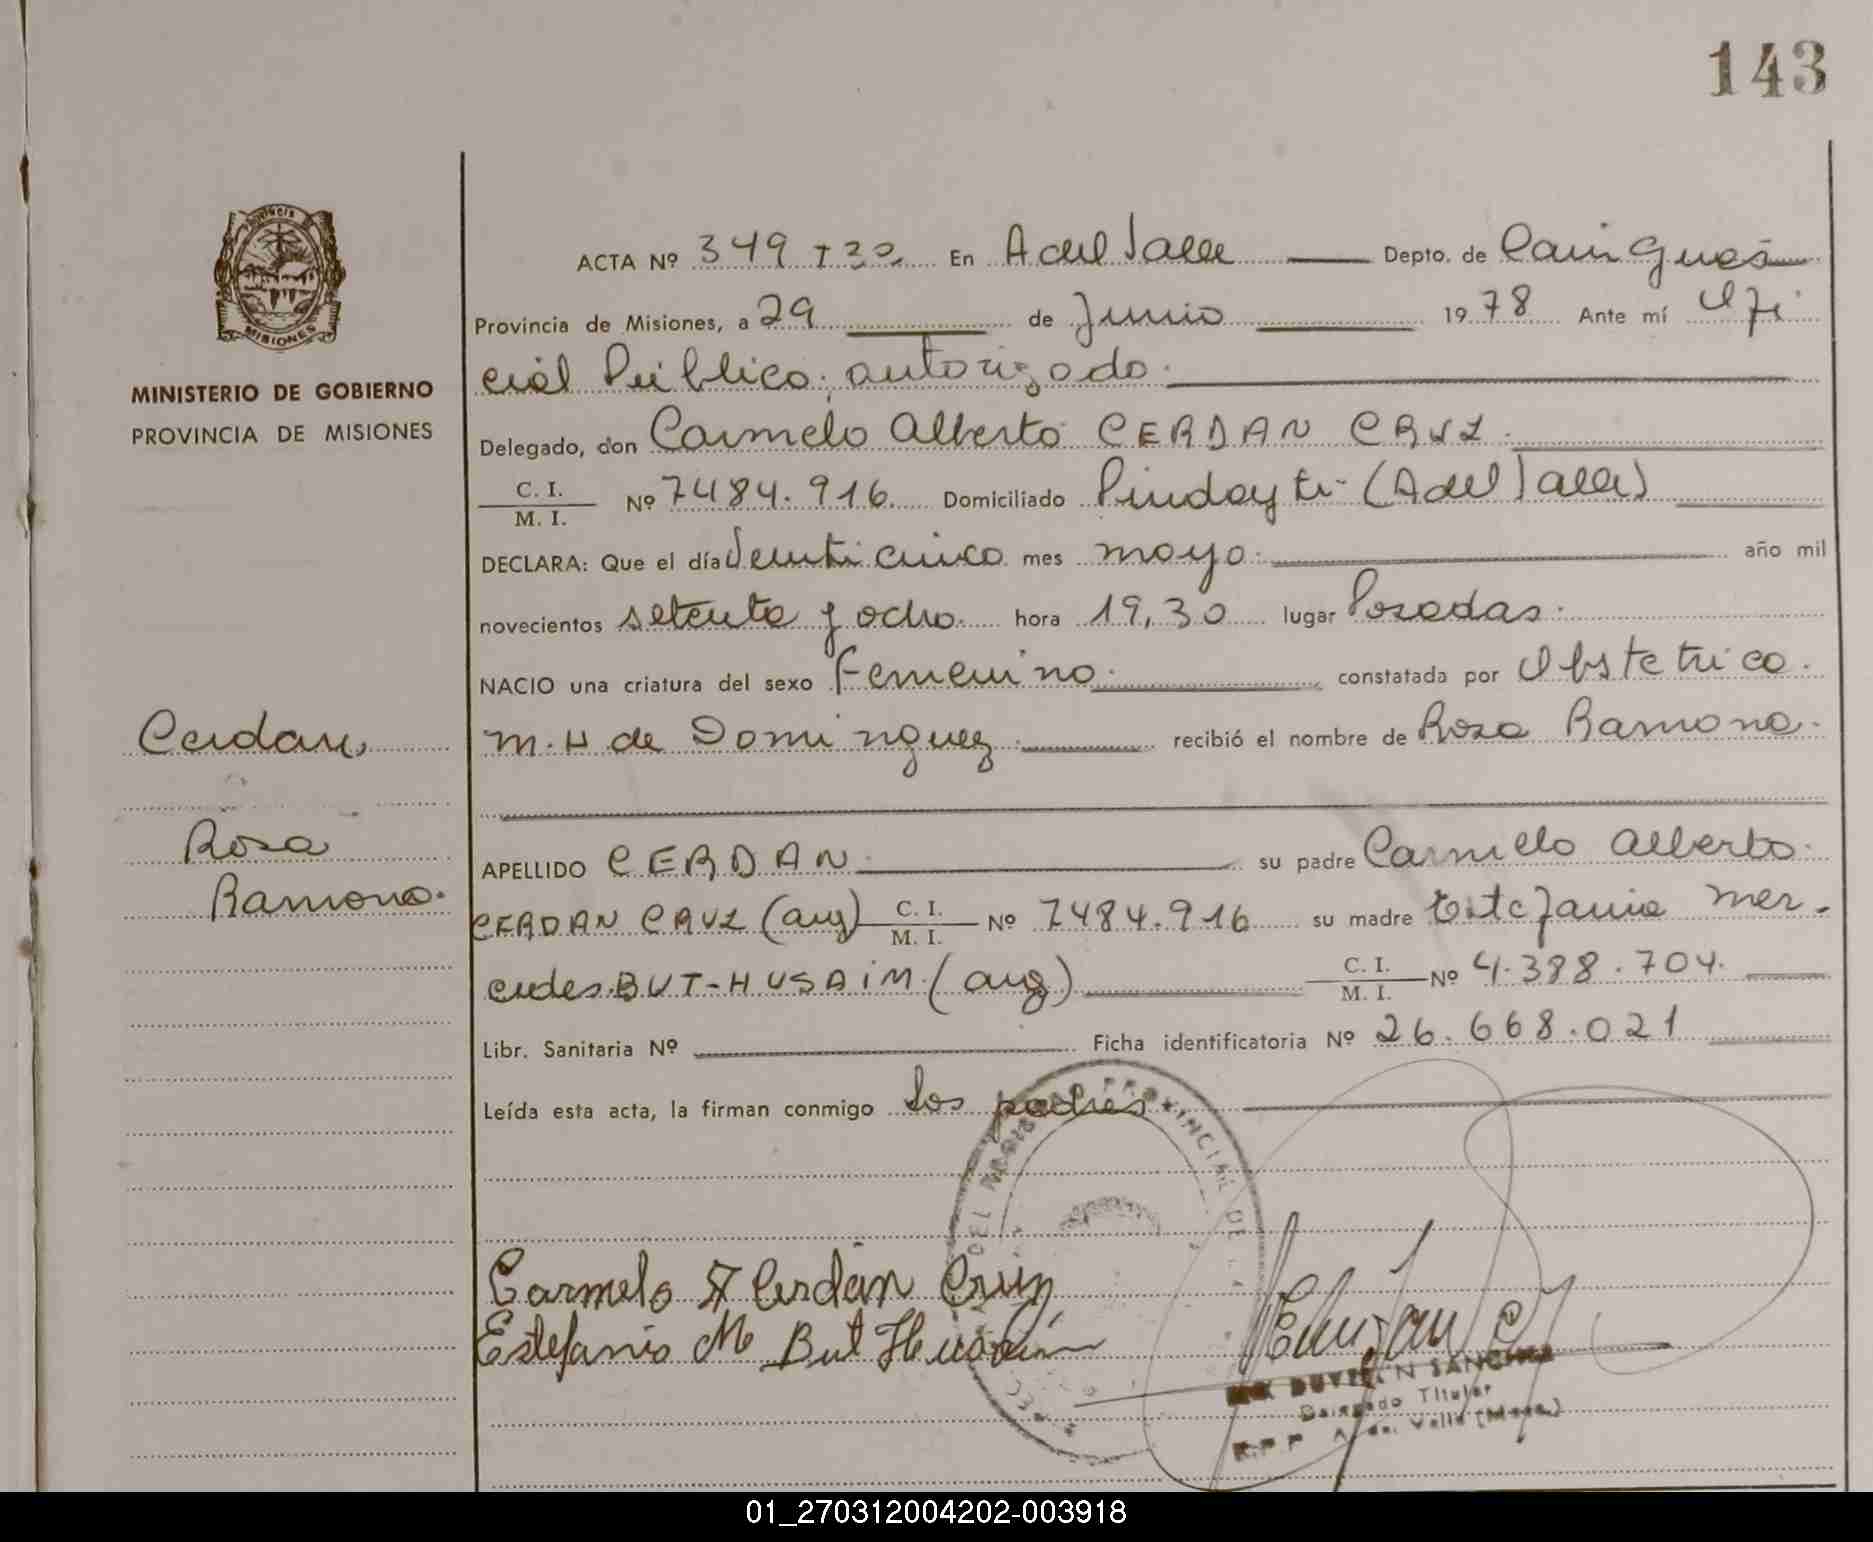 143
MISIONES
MINISTERIO DE GOBIERNO
PROVINCIA DE MISIONES
Cerdan,
Rosa
Ramona.
ACTA Nº 349 T 2º En A del Valle Depto. de Cainguás
Provincia de Misiones, a 29 de Junio 1978 Ante mí Ofi
cial Público autorizado.
Delegado, don Carmelo Alberto CERDAN CRUZ.
C. I.
M. I. Nº 7484.916 Domiciliado Pindayti (A del Valle)
DECLARA: Que el día Veinticinco mes mayo. año mil
novecientos setenta y ocho hora 19,30 lugar Posadas.
NACIO una criatura del sexo Femenino. constatada por Obstetrico.
M. H de Dominguez. recibió el nombre de Rosa Ramona.
APELLIDO CERDAN. su padre Carmelo Alberto
CERDAN CRUZ (arg) C. I. M. I. Nº 7484.916 su madre Estefania Mer-
cedes BUT-HUSAIM (arg) C. I. M. I. Nº 4.388.704.
Libr. Sanitaria Nº Ficha identificatoria Nº 26.668.021
Leída esta acta, la firman conmigo los padres
PROVINCIAL DE
Carmelo A Cerdán Cruz
Estefania M But Husaim
SANCHEZ
Delegado Titular
Valle
01_270312004202-003918